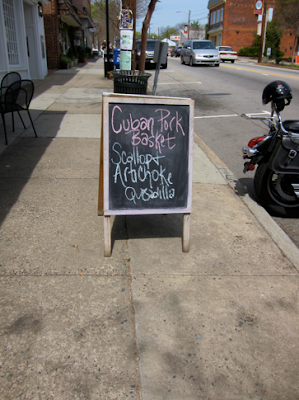 Cuban Pork
Basket
Scallop &
Artichoke
Qusidilla